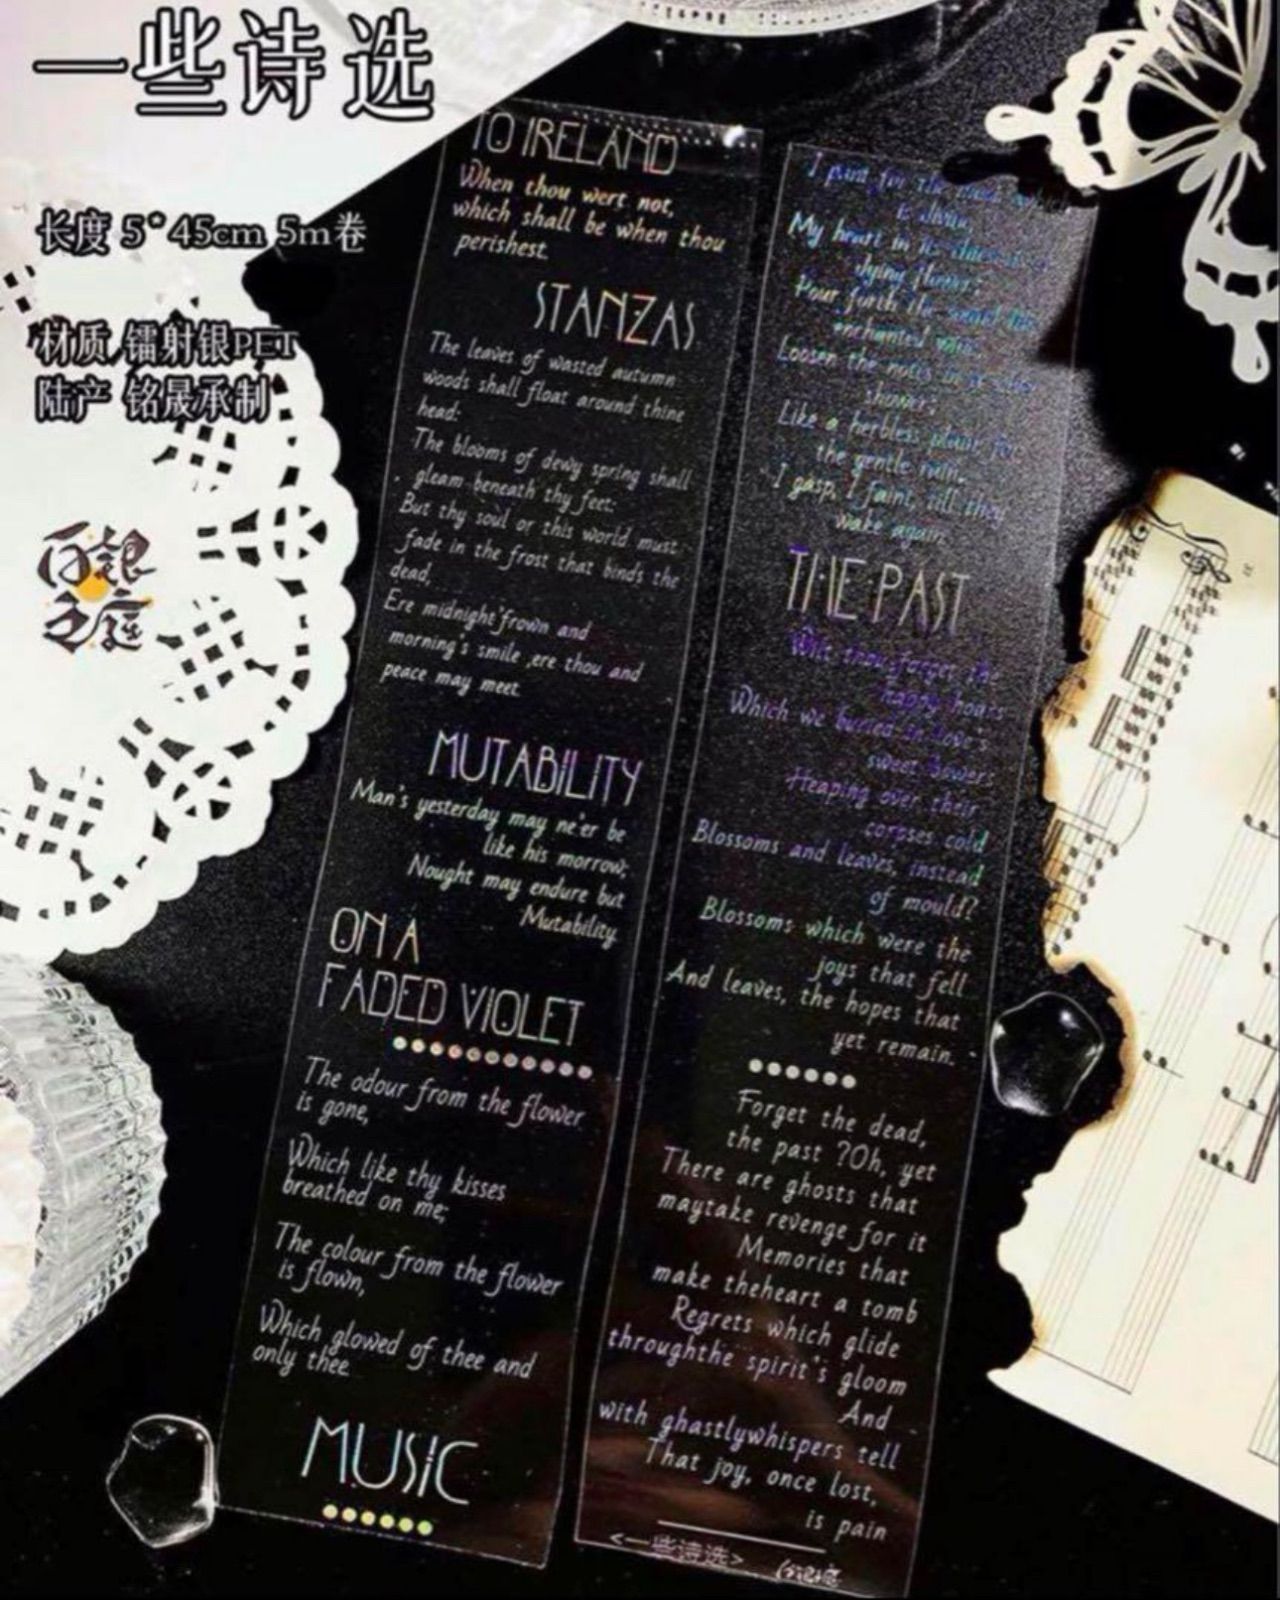 一些诗选
长度 5*45cm 5m卷
材质 镭射银PET
陆产 铭晟承制
百银
之庭
TO IRELAND
When thou wert not,
which shall be when thou
perishest.
STANZAS
The leaves of wasted autumn
woods shall float around thine
head:
The blooms of dewy spring shall
gleam beneath thy feet:
But thy soul or this world must
fade in the frost that binds the
dead,
Ere midnight's frown and
morning's smile ,ere thou and
peace may meet.
MUTABILITY
Man's yesterday may ne'er be
like his morrow;
Nought may endure but
Mutability.
ON A
FADED VIOLET
The odour from the flower
is gone,
Which like thy kisses
breathed on me;
The colour from the flower
is flown,
Which glowed of thee and
only thee
MUSIC
I pant for the music which
is divine,
My heart in its
dying flower;
Pour forth the sound
enchanted
Loosen the notes in a
shower;
Like a herbless plain for
the gentle rain,
I gasp, I faint, till they
wake again.
THE PAST
Wilt thou forget the
happy hours
Which we buried in Love's
sweet bowers,
Heaping over their
corpses cold
Blossoms and leaves, instead
of mould?
Blossoms which were the
joys that fell
And leaves, the hopes that
yet remain.
Forget the dead,
the past ?Oh, yet
There are ghosts that
maytake revenge for it
Memories that
make theheart a tomb
Regrets which glide
throughthe spirit's gloom
And
with ghastlywhispers tell
That joy, once lost,
is pain
<一些诗选>